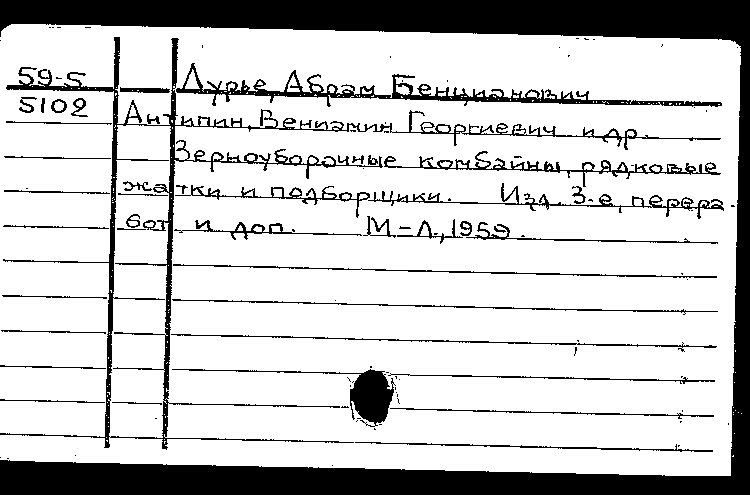 59-5 Лурье, Абрам Бенцианович
5102 Антипин, Вениамин Георгиевич и др.
Зерноуборочные комбайны, рядковые
жатки и подборщики. Изд. 3-е, перера-
бот. и доп. М-Л., 1959.